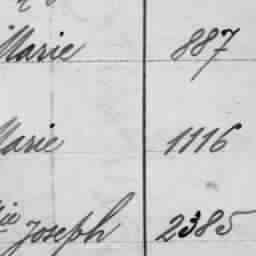 Marie 887
Marie 1116
Joseph 2385